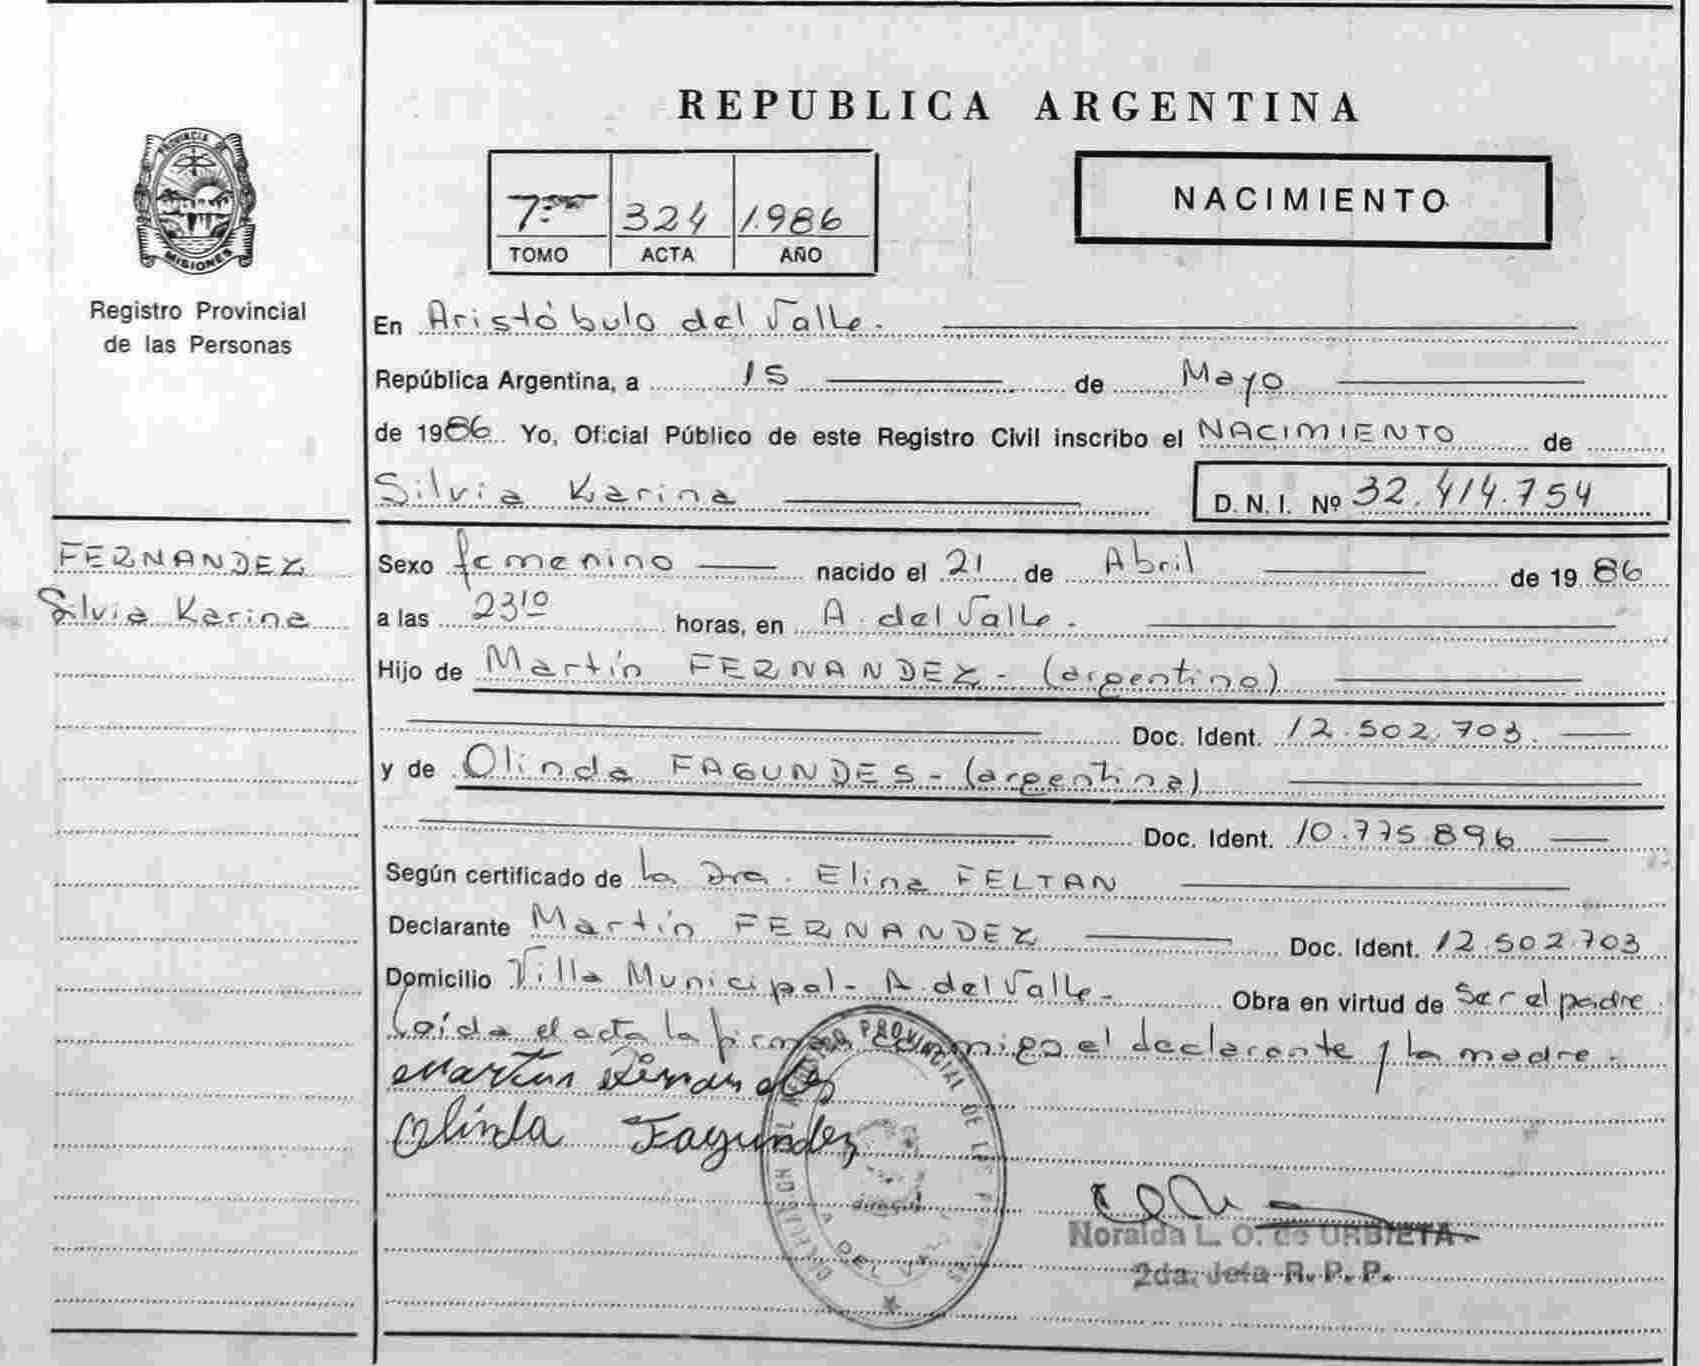 REPUBLICA ARGENTINA
PROVINCIA DE
MISIONES
Registro Provincial
de las Personas
324 1.986
TOMO ACTA AÑO
NACIMIENTO
En Aristóbulo del Valle.
República Argentina, a 15 de Mayo
de 1986 Yo, Oficial Público de este Registro Civil inscribo el NACIMIENTO de
Silvia Karina D. N. I. Nº 32.414.754
FERNANDEZ
Silvia Karina
Sexo femenino nacido el 21 de Abril de 1986
a las 23 10 horas, en A. del Valle.
Hijo de Martín FERNANDEZ - (argentino)
Doc. Ident. 12.502.703.
y de Olinda FAGUNDES - (argentina)
Doc. Ident. 10.775.896
Según certificado de la Dra. Elina FELTAN
Declarante Martín FERNANDEZ Doc. Ident. 12.502.703
Domicilio Villa Municipal - A. del Valle. Obra en virtud de ser el padre.
Leída el acta la firman conmigo el declarante y la madre.
Martin Fernandes
Olinda Fagundez
PROVINCIAL DE LAS
A. DEL VALLE
Noralda L. O. de URBIETA
2da. Jefa R. P. P.